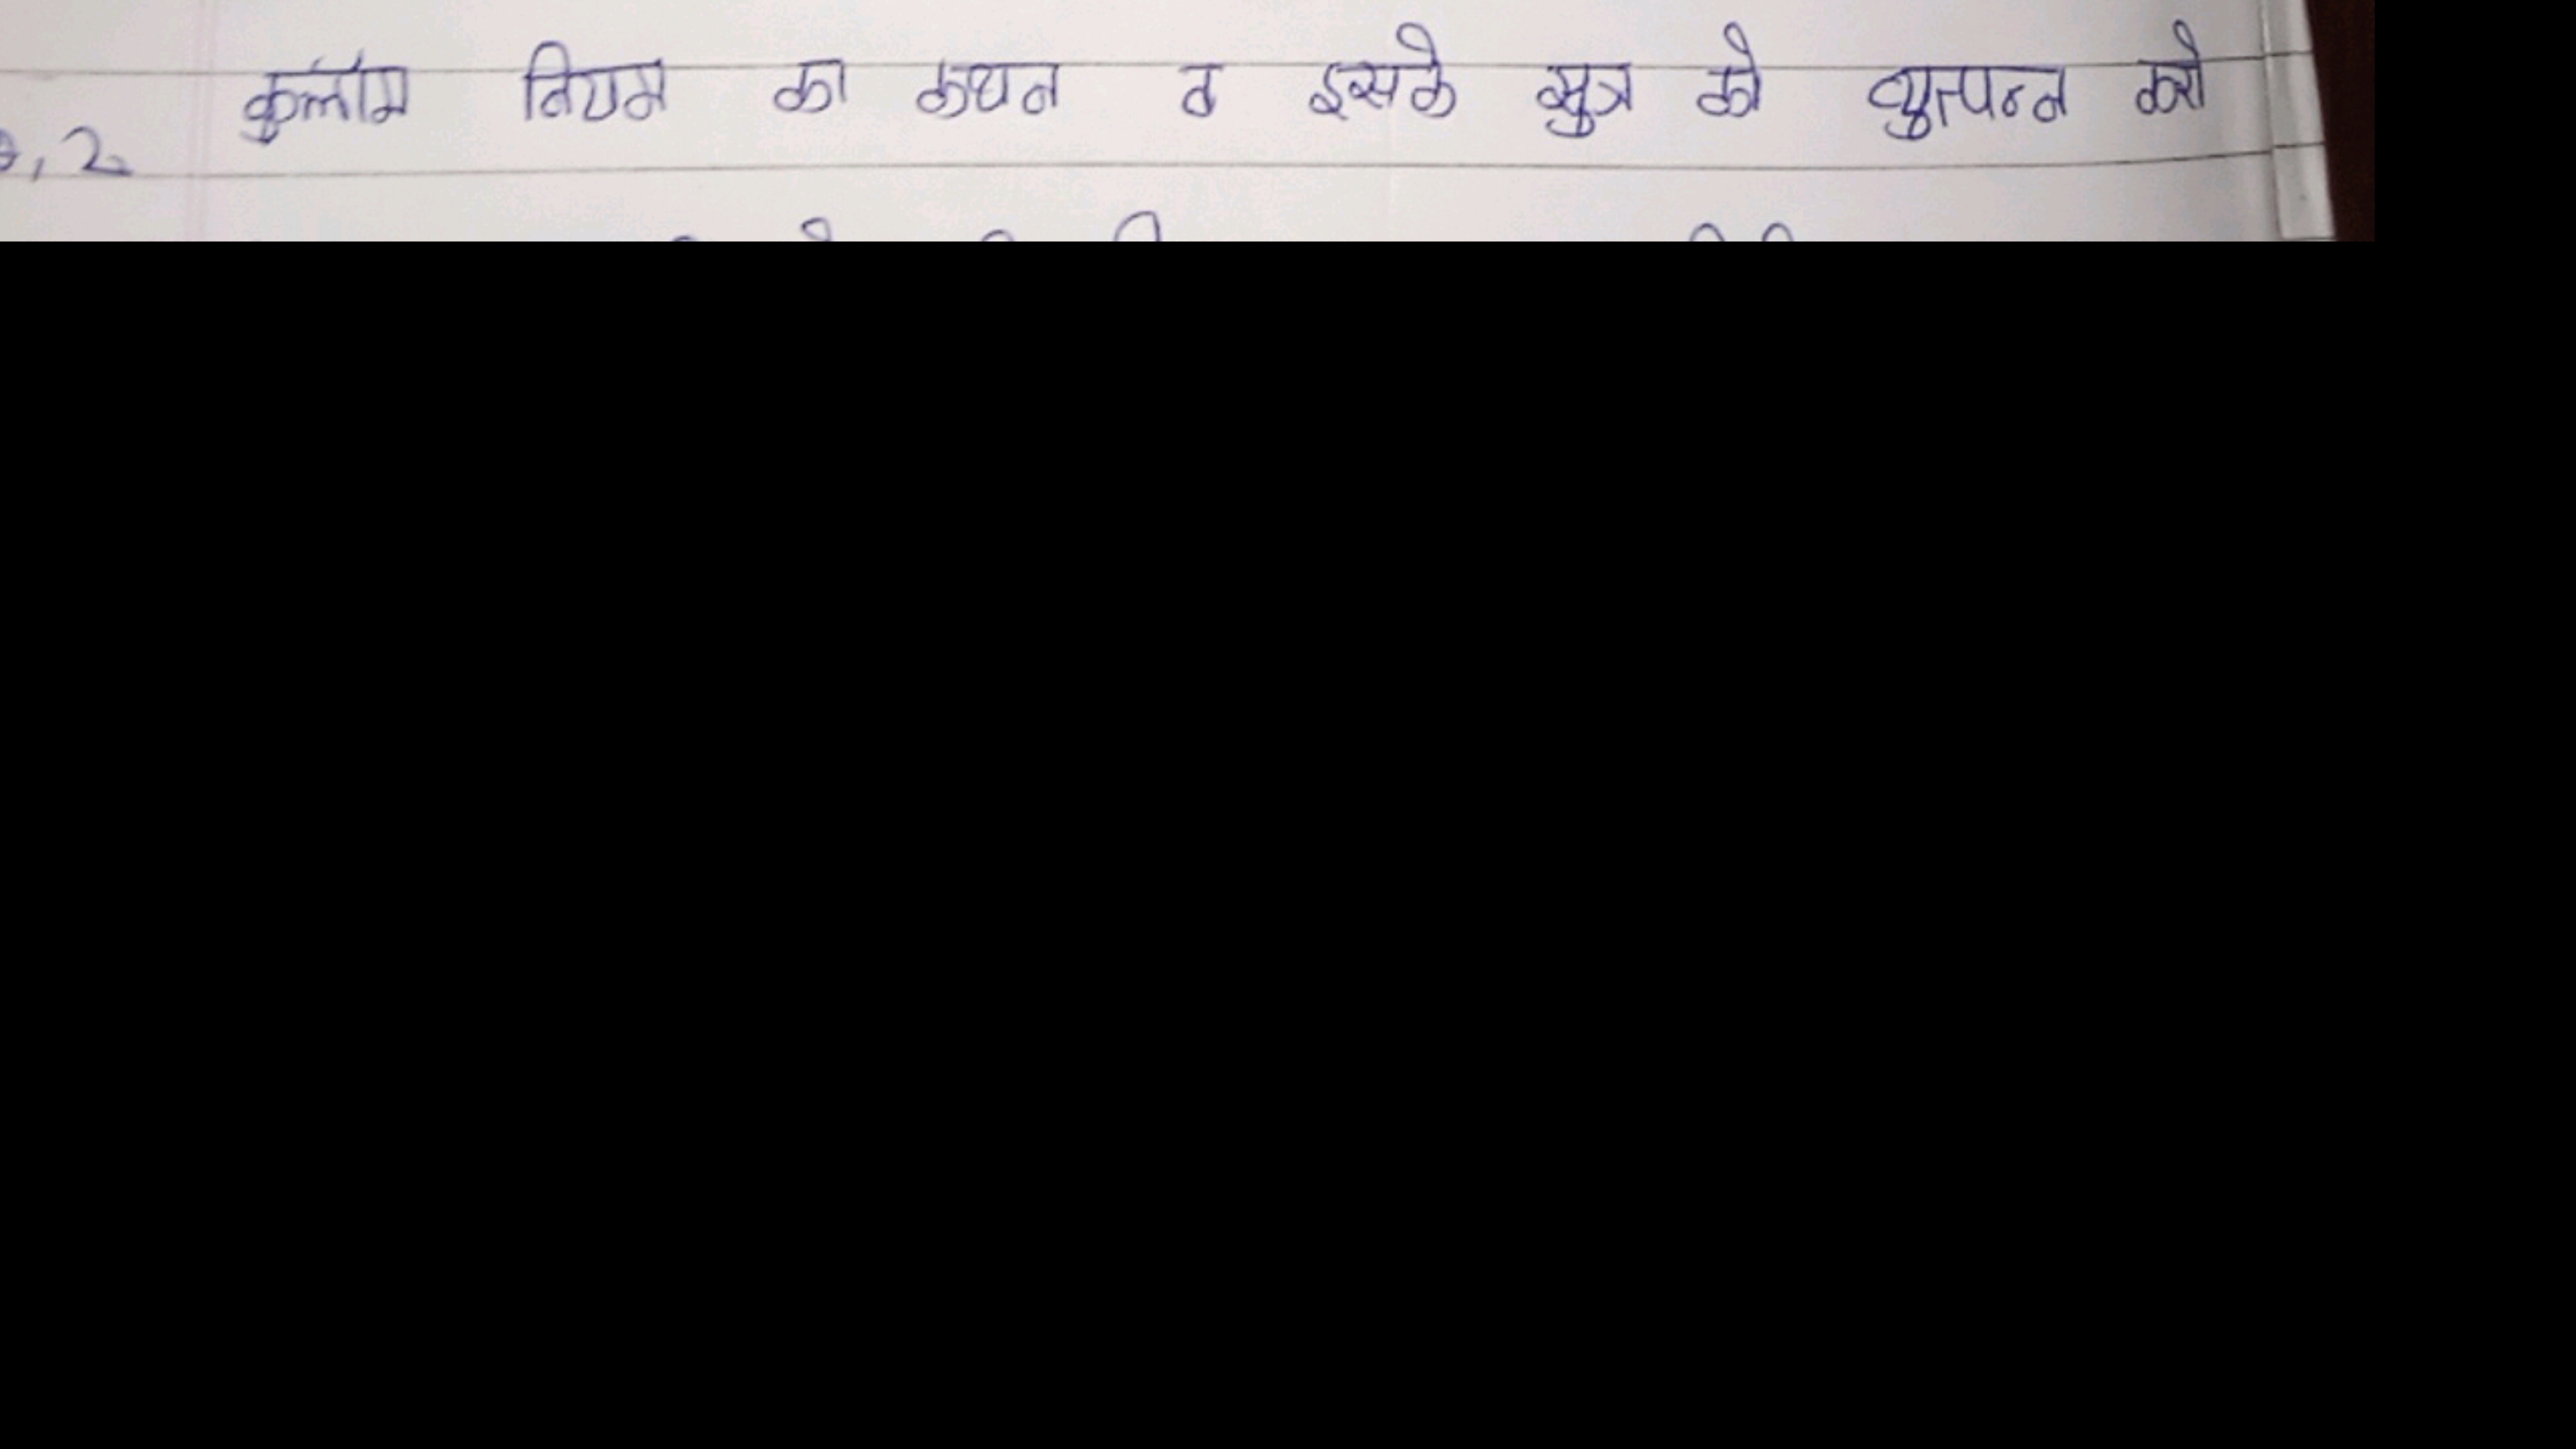 कुलॉम नियम का कथन व इसके सुत्र को व्युत्पन्न करो
, 2